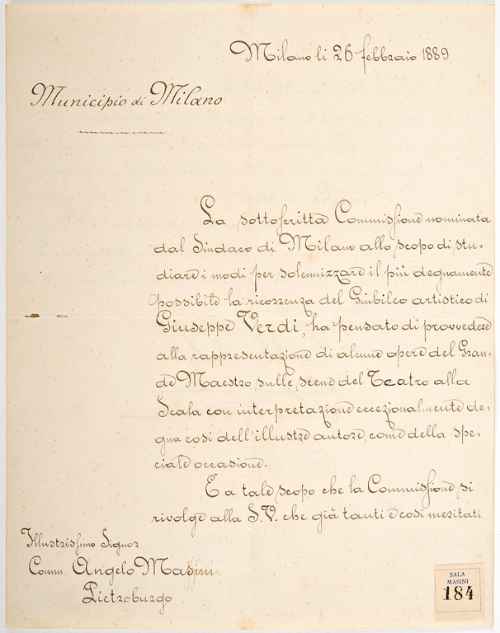 Milano li 26 febbraio 1889
Municipio di Milano
La sottoscritta Commissione nominata
dal Sindaco di Milano allo scopo di stu-
diare i modi per solennizzare il più degnamente
possibile la ricorrenza del Giubileo artistico di
Giuseppe Verdi, ha pensato di provvedere
alla rappresentazione di alcune opere del Gran-
de Maestro sulle scene del Teatro alla
Scala con interpretazione eccezionalmente de-
gna così dell'illustre autore, come della spe-
ciale occasione.
E a tale scopo che la Commissione si
rivolge alla S.V. che già tanti e così meritati
Illustrissimo Signor
Comm. Angelo Masini
Pietroburgo
SALA
MASINI
184